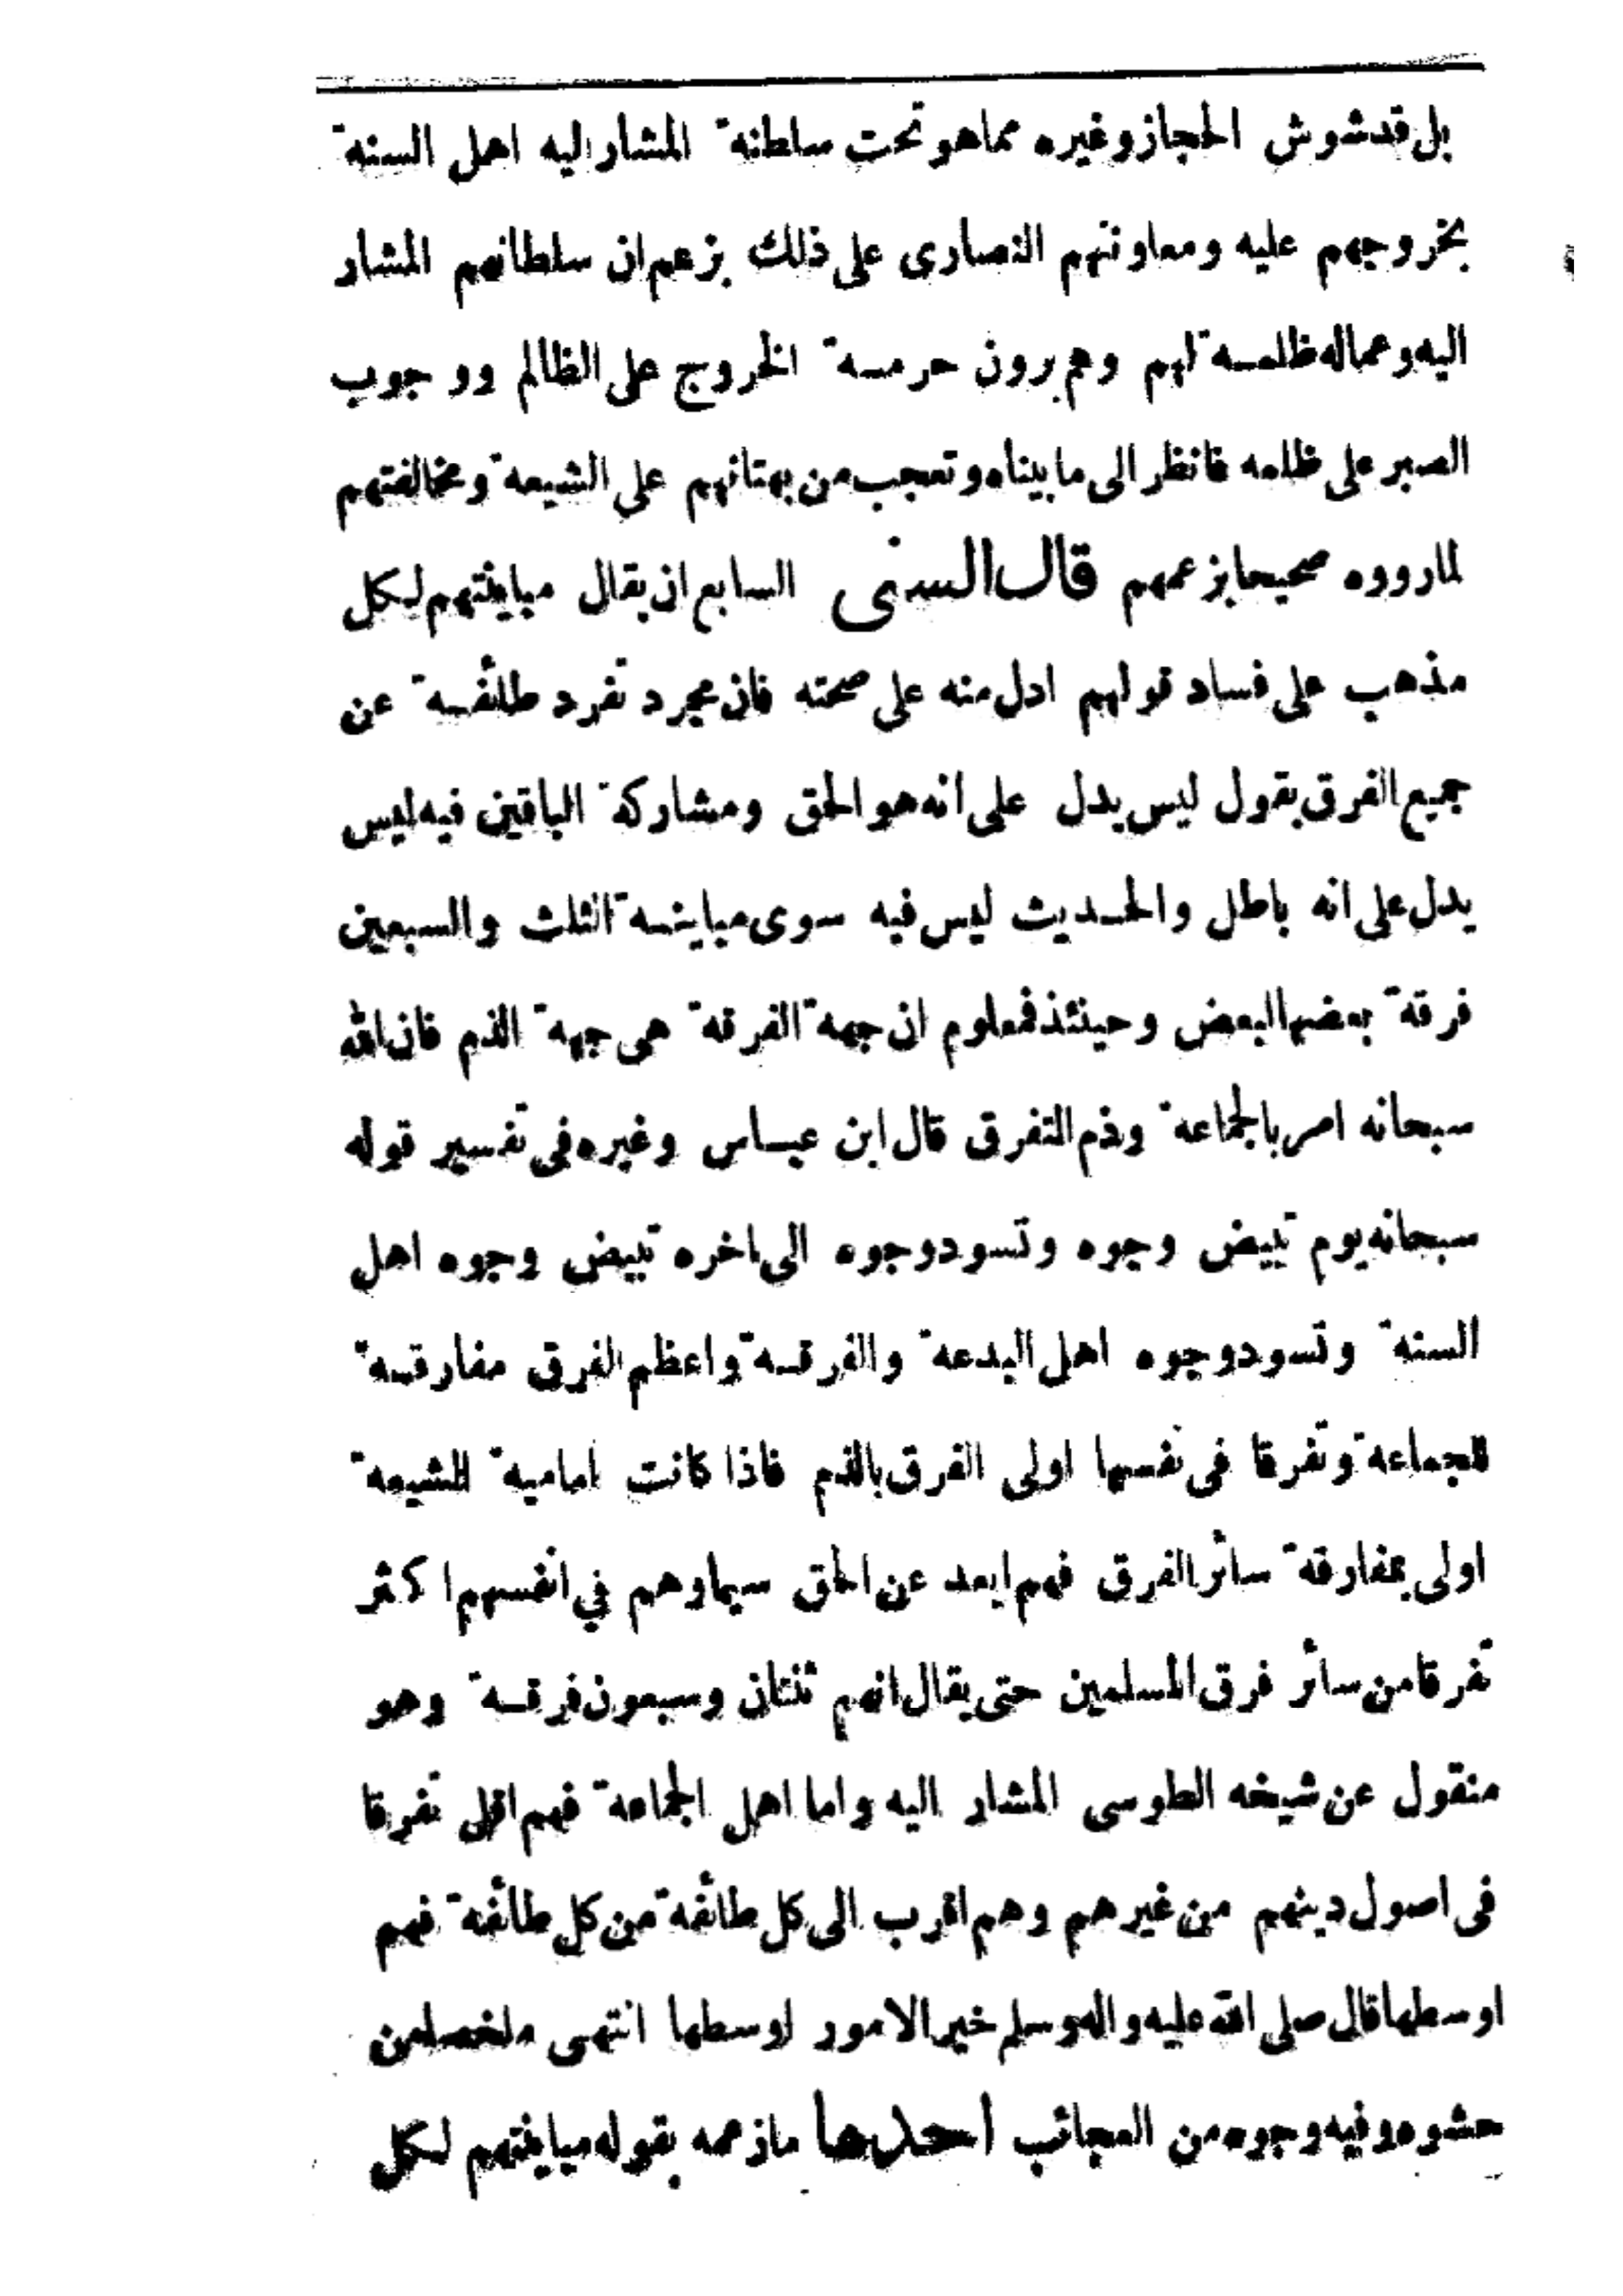 بل قد شوش الحجاز وغيره مما هو تحت سلطنة المشار اليه اهل السنة
بخروجهم عليه ومعاونتهم النصارى على ذلك بزعم ان سلطانهم المشار
اليه وعماله ظلمة لهم وهم يرون حرمة الخروج على الظالم ووجوب
الصبر على ظلمه فانظر الى ما بيناه وتعجب من بهتانهم على الشيعة ومخالفتهم
لما رووه صحيحا بزعمهم قال السنى السابع ان يقال مباينتهم لكل
مذهب على فساد قولهم ادل منه على صحته فان مجرد تفرد طائفة عن
جميع الفرق بقول ليس يدل على انه هو الحق ومشاركة الباقين فيه ليس
يدل على انه باطل والحديث ليس فيه سوى مباينة الثلث والسبعين
فرقة بعضها لبعض وحينئذ فمعلوم ان جهة الفرقة هى جهة الذم فان الله
سبحانه امر بالجماعة وذم التفرق قال ابن عباس وغيره فى تفسير قوله
سبحانه يوم تبيض وجوه وتسود وجوه الى اخره تبيض وجوه اهل
السنة وتسود وجوه اهل البدعة والفرقة واعظم الفرق مفارقة
للجماعة وتفرقا فى نفسها اولى الفرق بالذم فاذا كانت امامية الشيعة
اولى بمفارقة سائر الفرق فهم ابعد عن الحق سيما وهم في انفسهم اكثر
تفرقا من سائر فرق المسلمين حتى يقال انهم ثنتان وسبعون فرقة وهو
منقول عن شيخه الطوسى المشار اليه واما اهل الجماعة فهم اقل تفرقا
فى اصول دينهم من غيرهم وهم اقرب الى كل طائفة من كل طائفة فهم
اوسطها قال صلى الله عليه واله وسلم خير الامور اوسطها انتهى ملخصا من
حشوه وفيه وجوه من العجائب احدها ما زعمه بقوله مباينتهم لكل